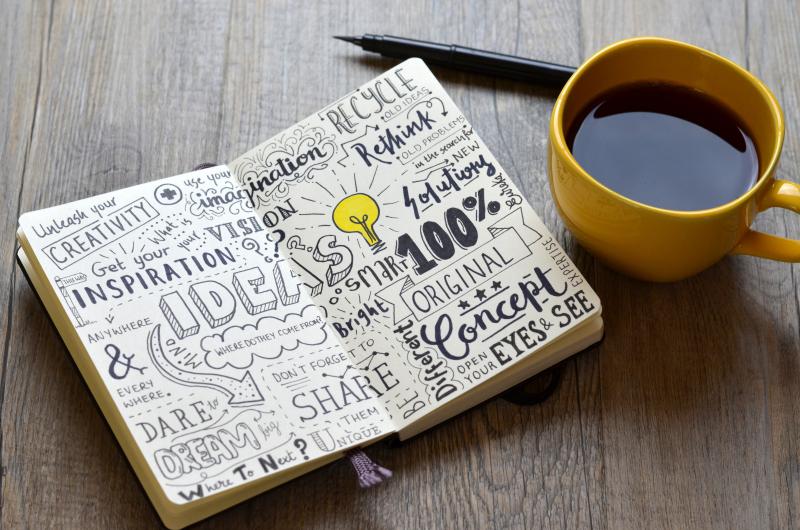 Unleash your
CREATIVITY
use your
imagination
What is
your
VISION
?
Get your
INSPIRATION
THIS WAY
ANYWHERE
&
EVERY
WHERE.
IDEAS
MIND
WHERE DO THEY COME FROM?
DON'T FORGET
TO
SHARE
THEM
DARE to
DREAM big
BE
UNIQUE
Where To Next?
RECYCLE
OLD IDEAS
Rethink
OLD PROBLEMS
in the search for
NEW
Solutions
&
SMART
Bright
100%
ORIGINAL
Concept
Different
OPEN
YOUR
EYES & SEE
EXPERTISE